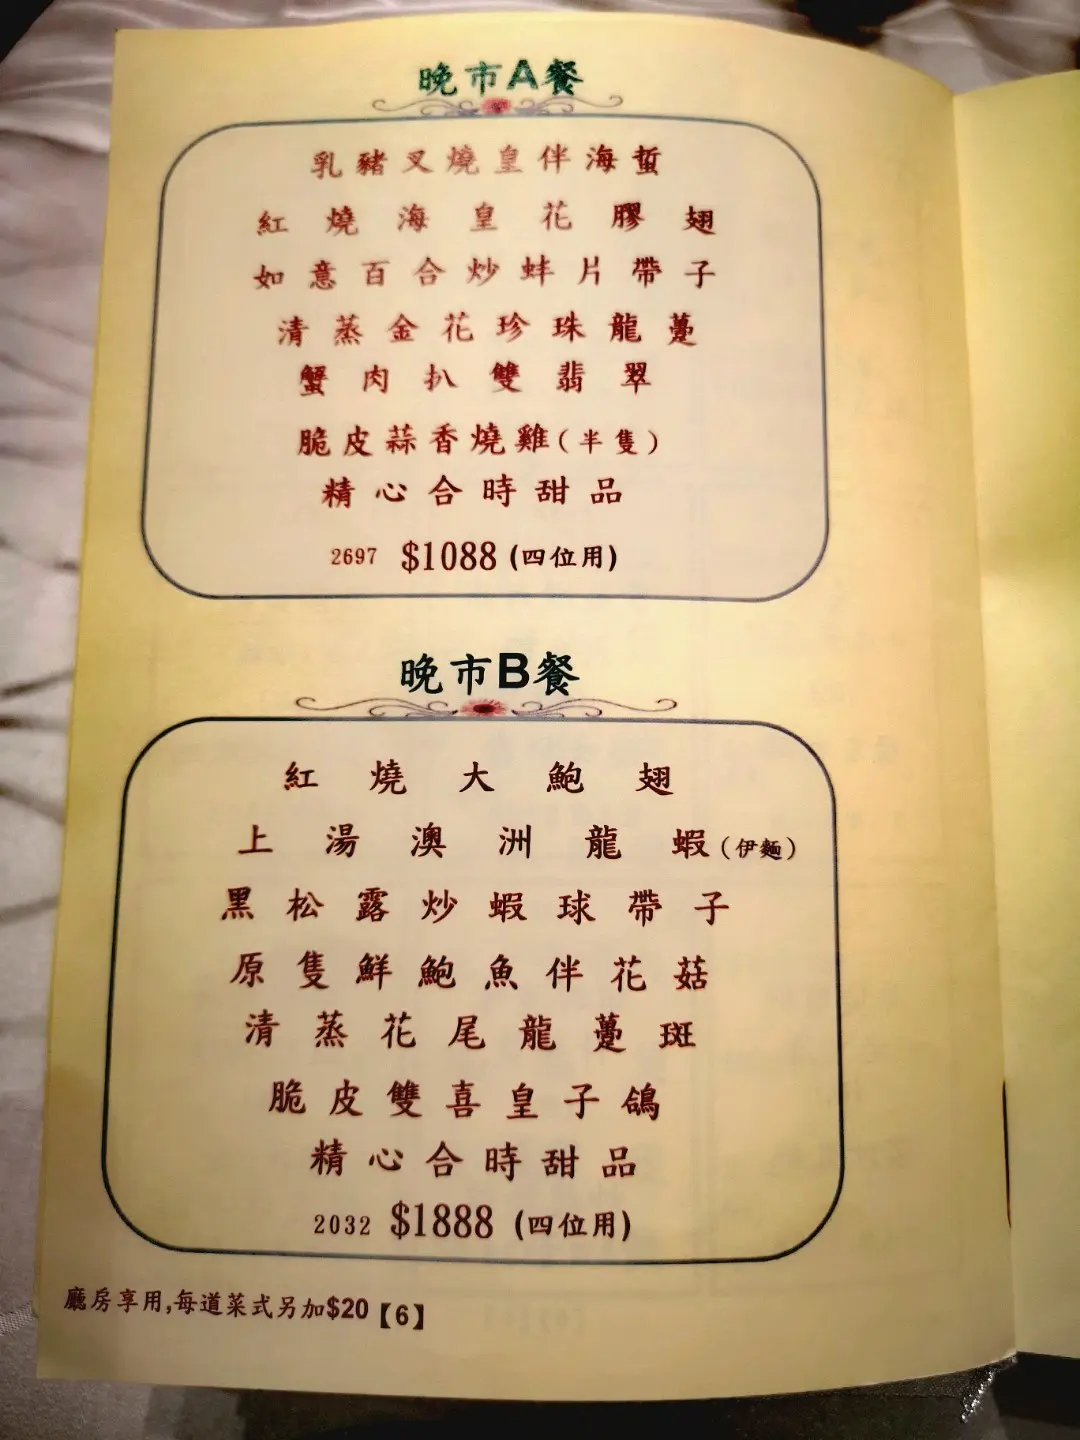 晚市A餐
乳豬叉燒皇伴海蜇
紅燒海皇花膠翅
如意百合炒蚌片帶子
清蒸金花珍珠龍躉
蟹肉扒雙翡翠
脆皮蒜香燒雞(半隻)
精心合時甜品
2697 $1088 (四位用)
晚市B餐
紅燒大鮑翅
上湯澳洲龍蝦(伊麵)
黑松露炒蝦球帶子
原隻鮮鮑魚伴花菇
清蒸花尾龍躉斑
脆皮雙喜皇子鴿
精心合時甜品
2032 $1888 (四位用)
廳房享用,每道菜式另加$20【6】